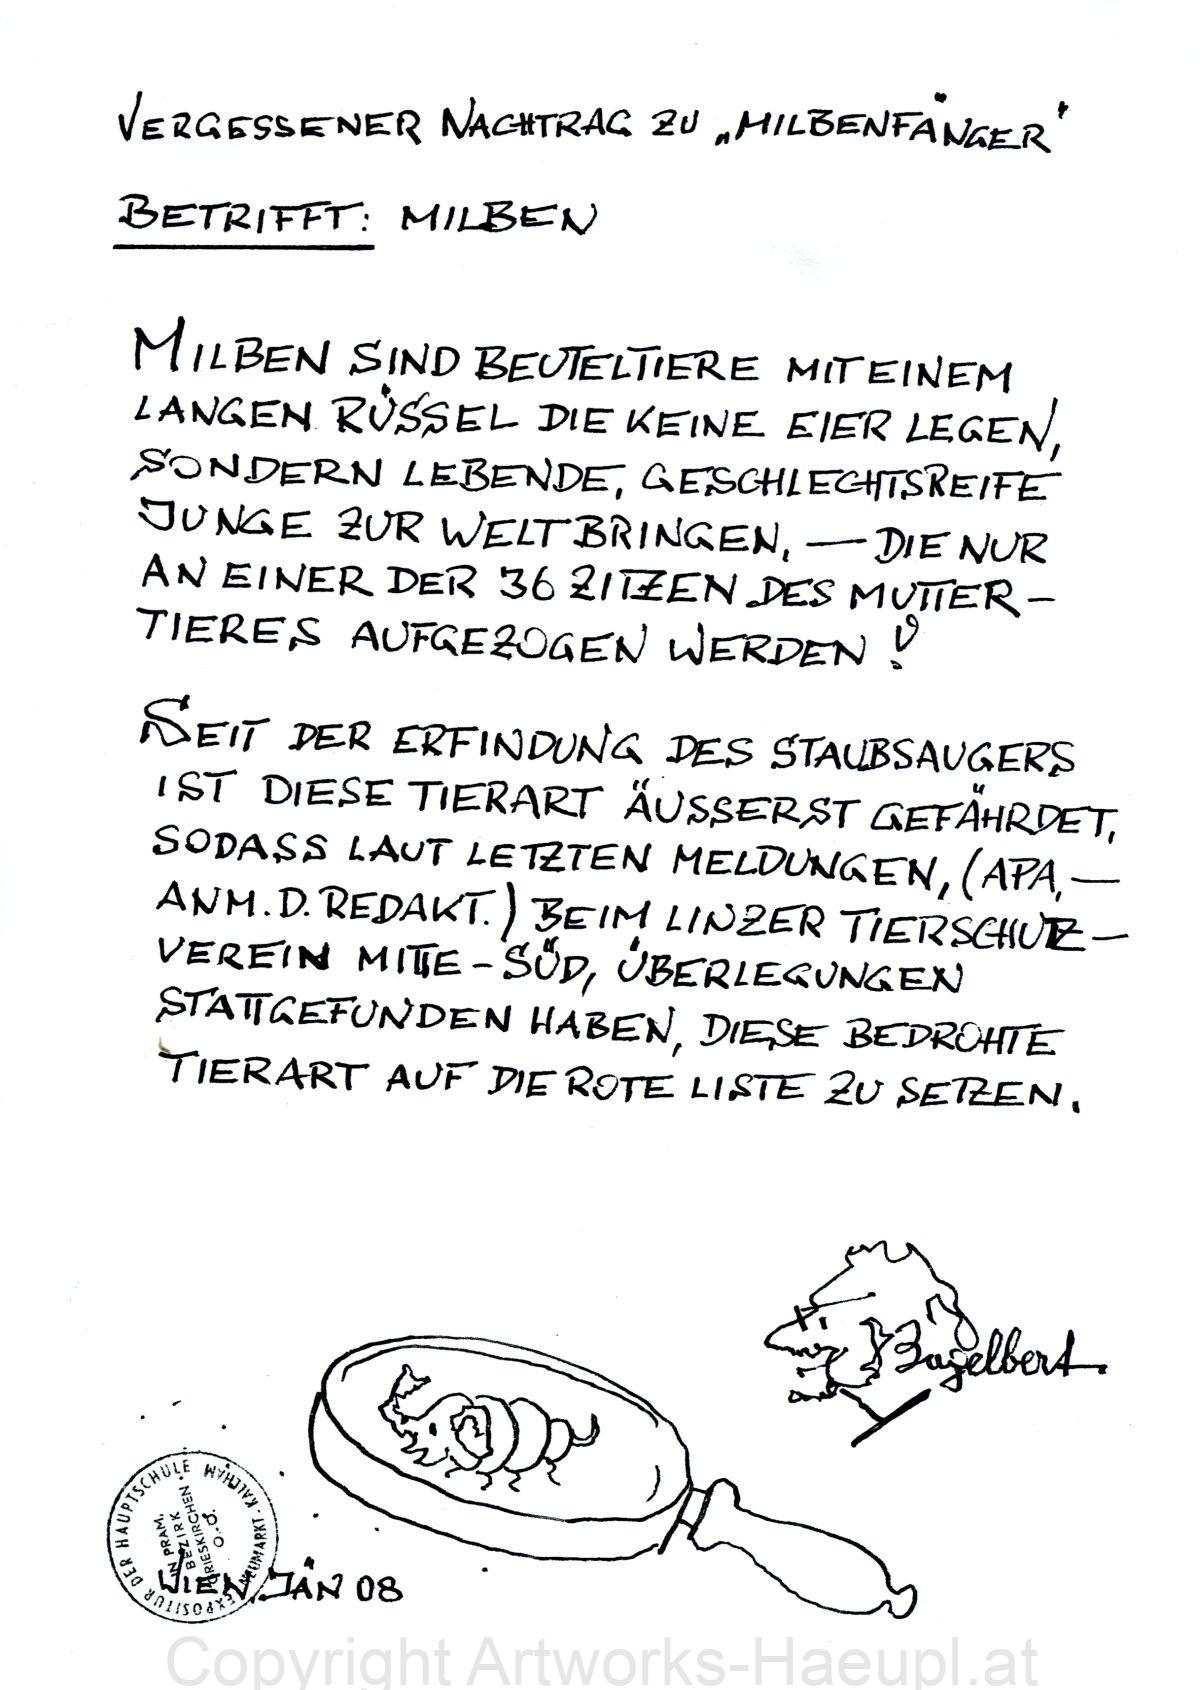 VERGESSENER NACHTRAG ZU „MILBENFÄNGER"
BETRIFFT: MILBEN
MILBEN SIND BEUTELTIERE MIT EINEM
LANGEN RÜSSEL DIE KEINE EIER LEGEN,
SONDERN LEBENDE, GESCHLECHTSREIFE
JUNGE ZUR WELT BRINGEN, — DIE NUR
AN EINER DER 36 ZITZEN DES MUTTER-
TIERES AUFGEZOGEN WERDEN!
SEIT DER ERFINDUNG DES STAUBSAUGERS
IST DIESE TIERART ÄUSSERST GEFÄHRDET,
SODASS LAUT LETZTEN MELDUNGEN, (APA, —
ANM. D. REDAKT.) BEIM LINZER TIERSCHUTZ-
VEREIN MITTE-SÜD, ÜBERLEGUNGEN
STATTGEFUNDEN HABEN, DIESE BEDROHTE
TIERART AUF DIE ROTE LISTE ZU SETZEN.
Bagelbert.
EXPOSITUR DER HAUPTSCHULE
NEUMARKT-KALLHAM
IN PRAM,
BEZIRK
GRIESKIRCHEN
O.Ö.
WIEN, JÄN 08
Copyright Artworks-Haeupl.at